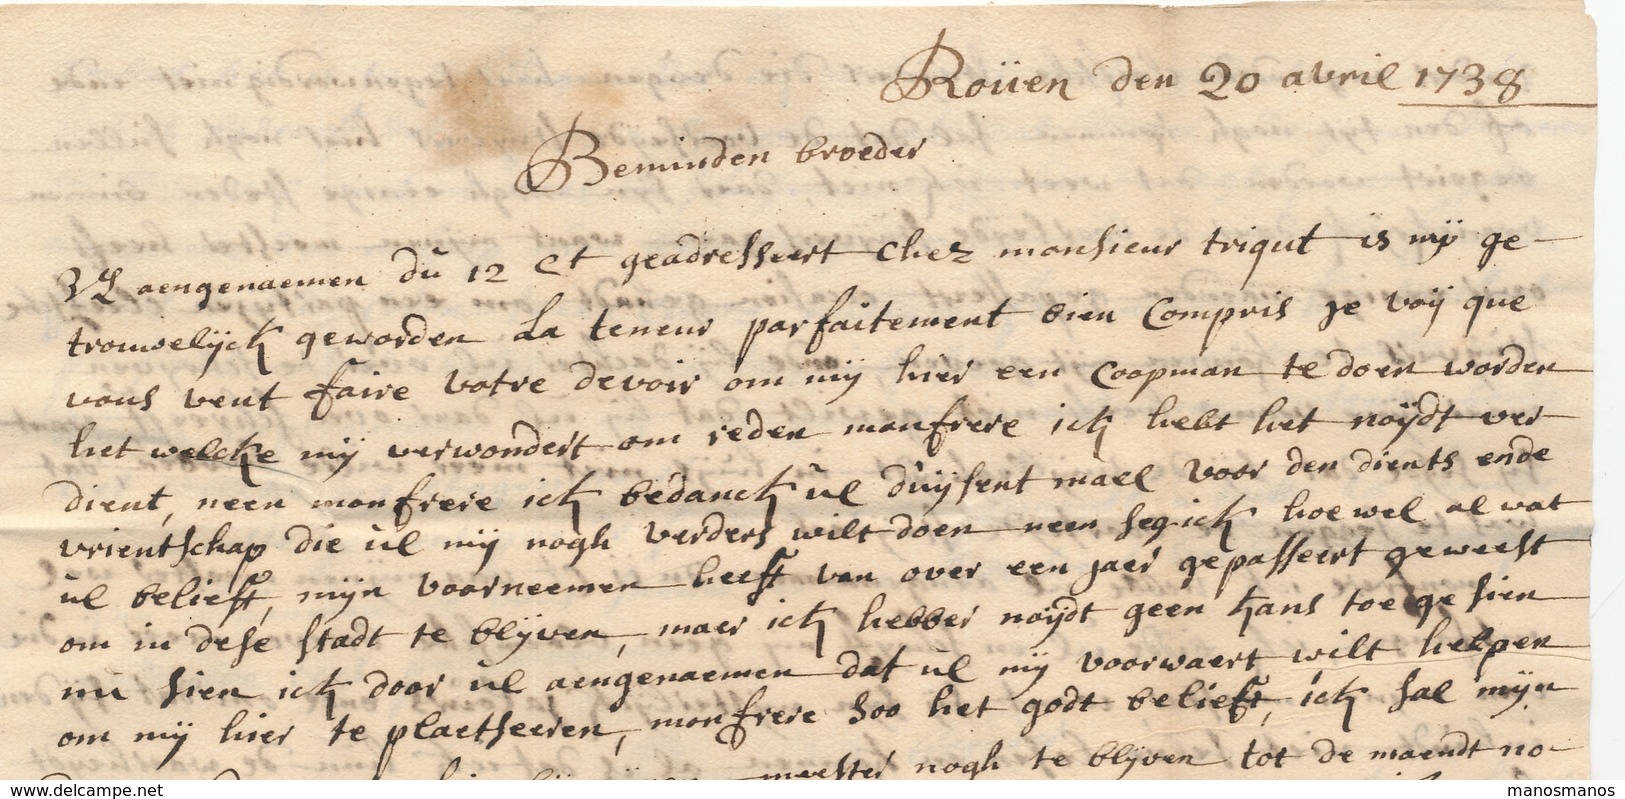 Roüen den 20 avril 1738
Beminden broeder
UL aengenaemen du 12 Ct geadresseert chez monsieur triqut is mÿ ge-
trouwelÿck geworden La teneur parfaitement bien Compris je voÿ que
vous veut faire votre devoir om mÿ hier een Coopman te doen worden
het welcke mÿ verwondert om reden monfrere ick hebt het noÿdt ver
dient, neen monfrere ick bedanck ul duÿsent mael voor den dients ende
vrientschap die ul mÿ nogh verders wilt doen neen seg ick hoe wel al wat
ul belieft, mijn voorneemen heeft van over een jaer gepasseert geweest
om in dese stadt te blÿven, maer ick hebber noÿdt geen kans toe gesien
nu sien ick door ul aengenaemen dat ul mÿ voorwaert wilt helpen
om mÿ hier te plaetseeren, monfrere soo het godt belieft, ick sal mijn
meester nogh te blÿven tot de maendt no-
delcampe.net
manosmanos